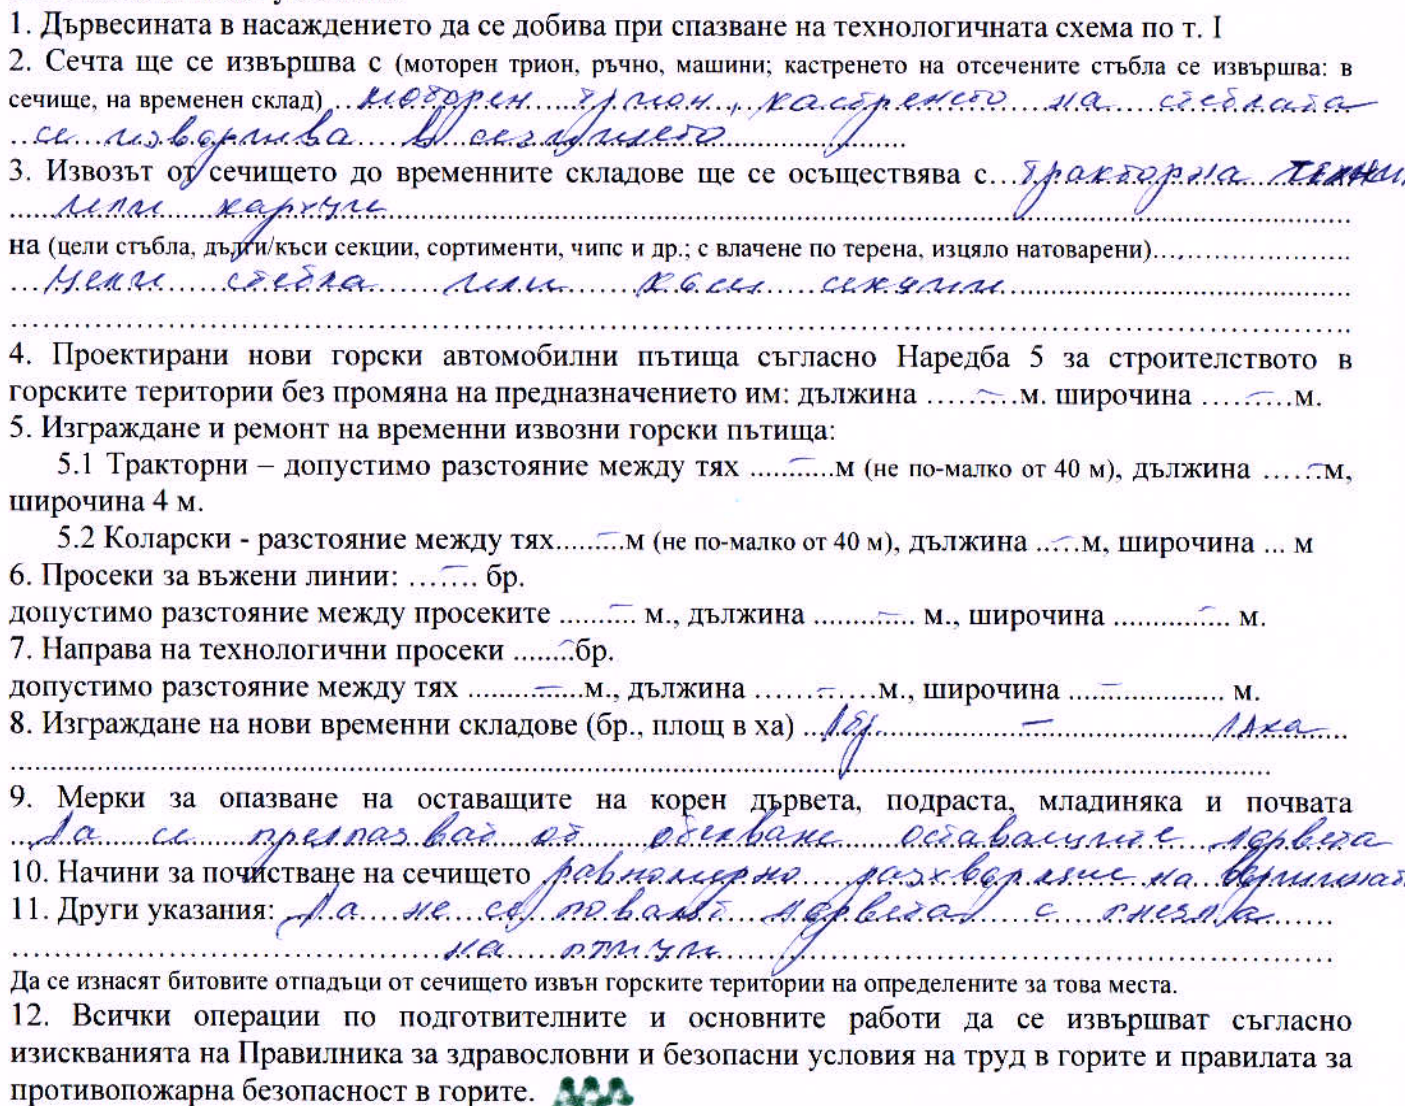 1. Дървесината в насаждението да се добива при спазване на технологичната схема по т. I
2. Сечта ще се извършва с (моторен трион, ръчно, машини; кастренето на отсечените стъбла се извършва: в
сечище, на временен склад) моторен трион, кастренето на стеблата
се извършва в сечището
3. Извозът от сечището до временните складове ще се осъществява с...тракторна техни
или каруци
на (цели стъбла, дълги/къси секции, сортименти, чипс и др.; с влачене по терена, изцяло натоварени)
цели стебла или къси секции
4. Проектирани нови горски автомобилни пътища съгласно Наредба 5 за строителството в
горските територии без промяна на предназначението им: дължина ...–...м. широчина ...–...м.
5. Изграждане и ремонт на временни извозни горски пътища:
5.1 Тракторни – допустимо разстояние между тях ...–...м (не по-малко от 40 м), дължина ...–м,
широчина 4 м.
5.2 Коларски - разстояние между тях...–...м (не по-малко от 40 м), дължина ...–.м, широчина ... м
6. Просеки за въжени линии: ...–... бр.
допустимо разстояние между просеките ...– м., дължина ...–... м., широчина ...–... м.
7. Направа на технологични просеки ...–бр.
допустимо разстояние между тях ...–...м., дължина ...–...м., широчина ...–... м.
8. Изграждане на нови временни складове (бр., площ в ха) 1бр. –
9. Мерки за опазване на оставащите на корен дървета, подраста, младиняка и почвата
Да се предпазват от обелване оставащите дървета
10. Начини за почистване на сечището равномерно разхвърляне на вършинат
11. Други указания: Да не се повалят дървета с гнезда
на птици
Да се изнасят битовите отпадъци от сечището извън горските територии на определените за това места.
12. Всички операции по подготвителните и основните работи да се извършват съгласно
изискванията на Правилника за здравословни и безопасни условия на труд в горите и правилата за
противопожарна безопасност в горите.